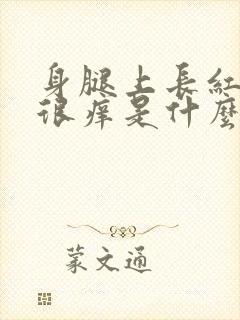 身腿上長紅
很痒是什麽
蒙文通